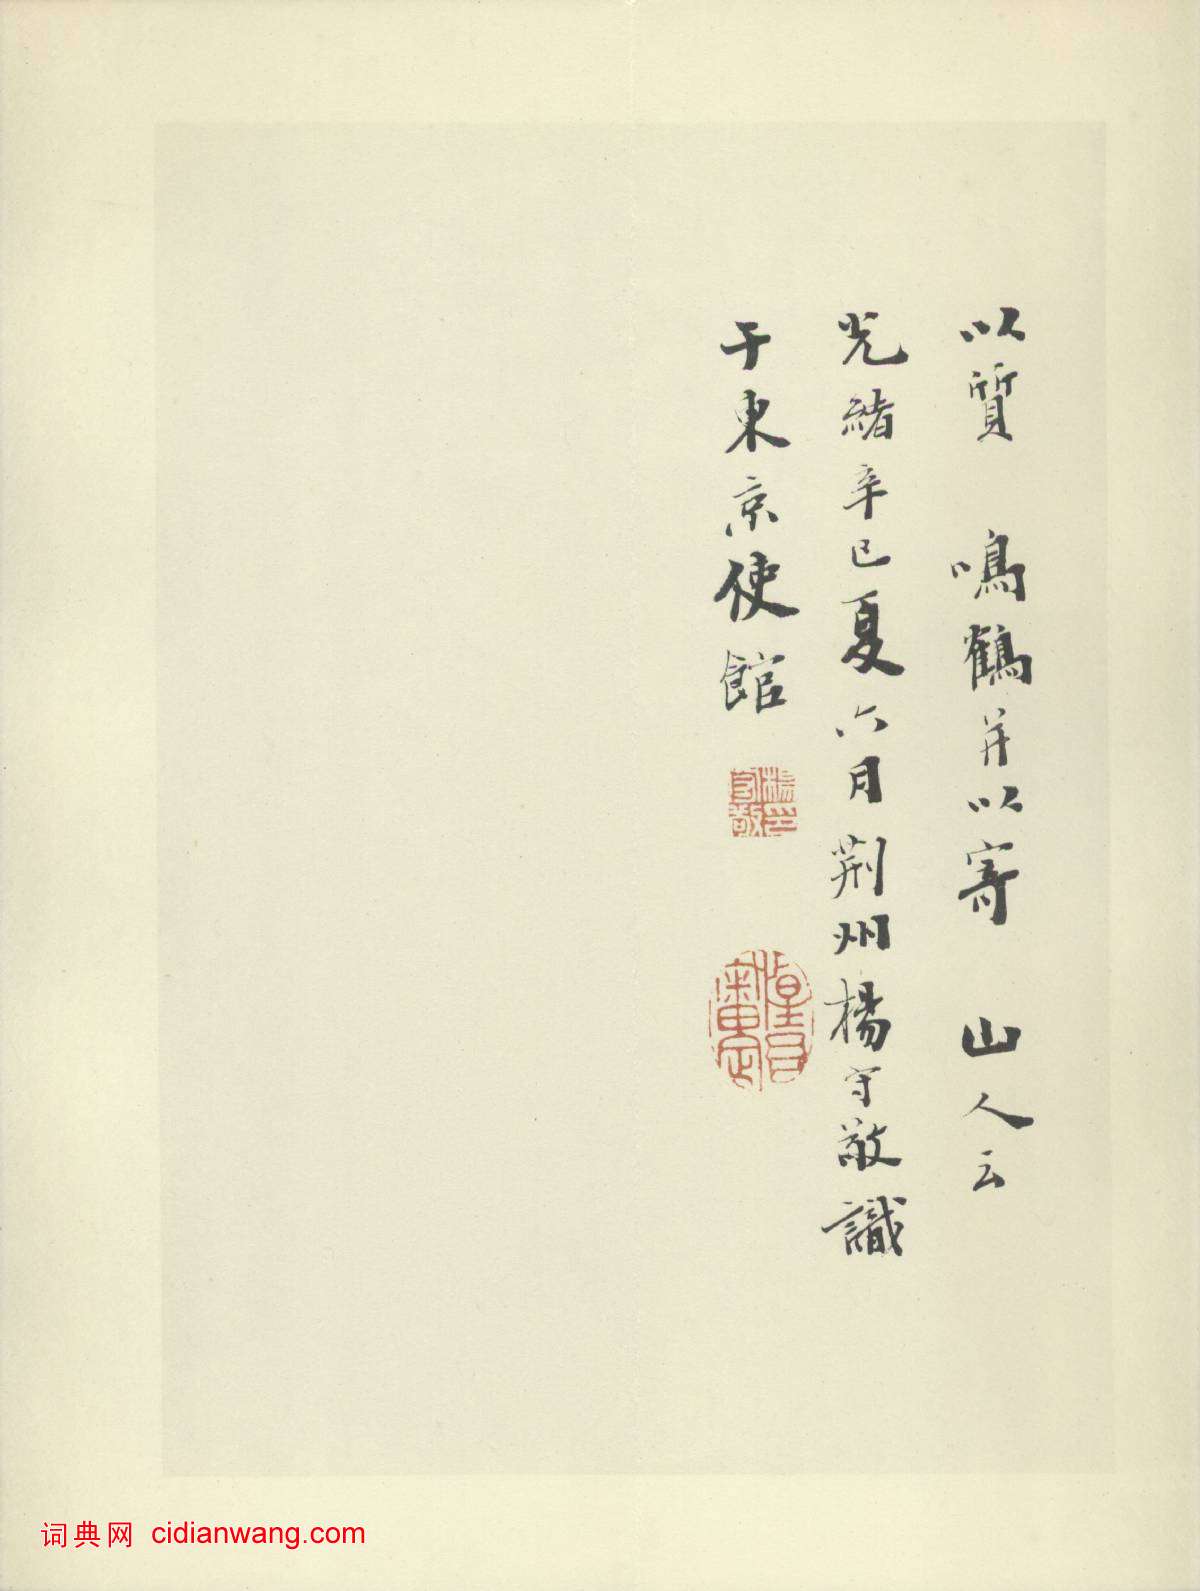 以質　鳴鶴并以寄　山人云
光緒辛巳夏六月荆州楊守敬識
于東京使館
楊印守敬
星吾審定
词典网 cidianwang.com